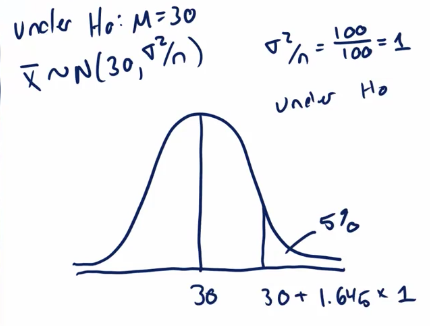 under Ho: M=30
X̄ ~ N(30, σ²/n)
σ²/n = 100/100 = 1
under Ho
5%
30
30 + 1.645 × 1